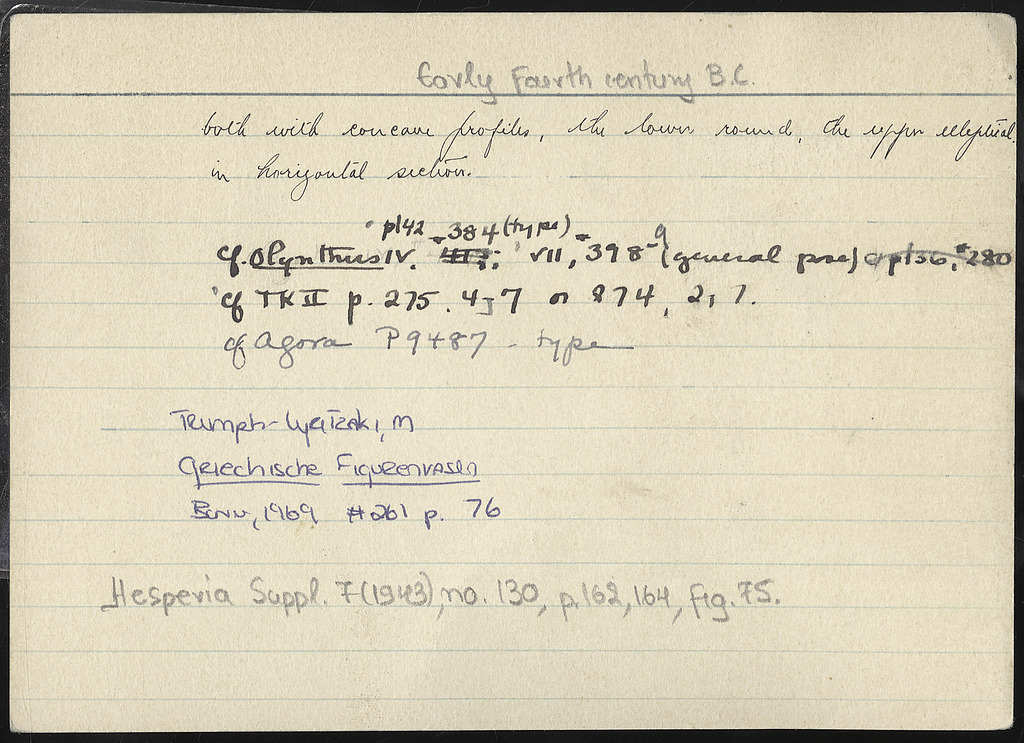 Early Fourth century B.C.
both with concave profiles, the lower round, the upper elliptical
in horizontal section.
pl 42 384 (type)
cf. Olynthus IV. VII, 398-9 (general pose) pl 36, #280
cf TK II p. 275. 4, 7 or 274, 2, 7.
cf Agora P9487 - type
Trumpf-Lyritzaki, M
Griechische Figurenvasen
Bonn, 1969 #261 p. 76
Hesperia Suppl. 7 (1943), no. 130, p. 162, 164, fig. 75.